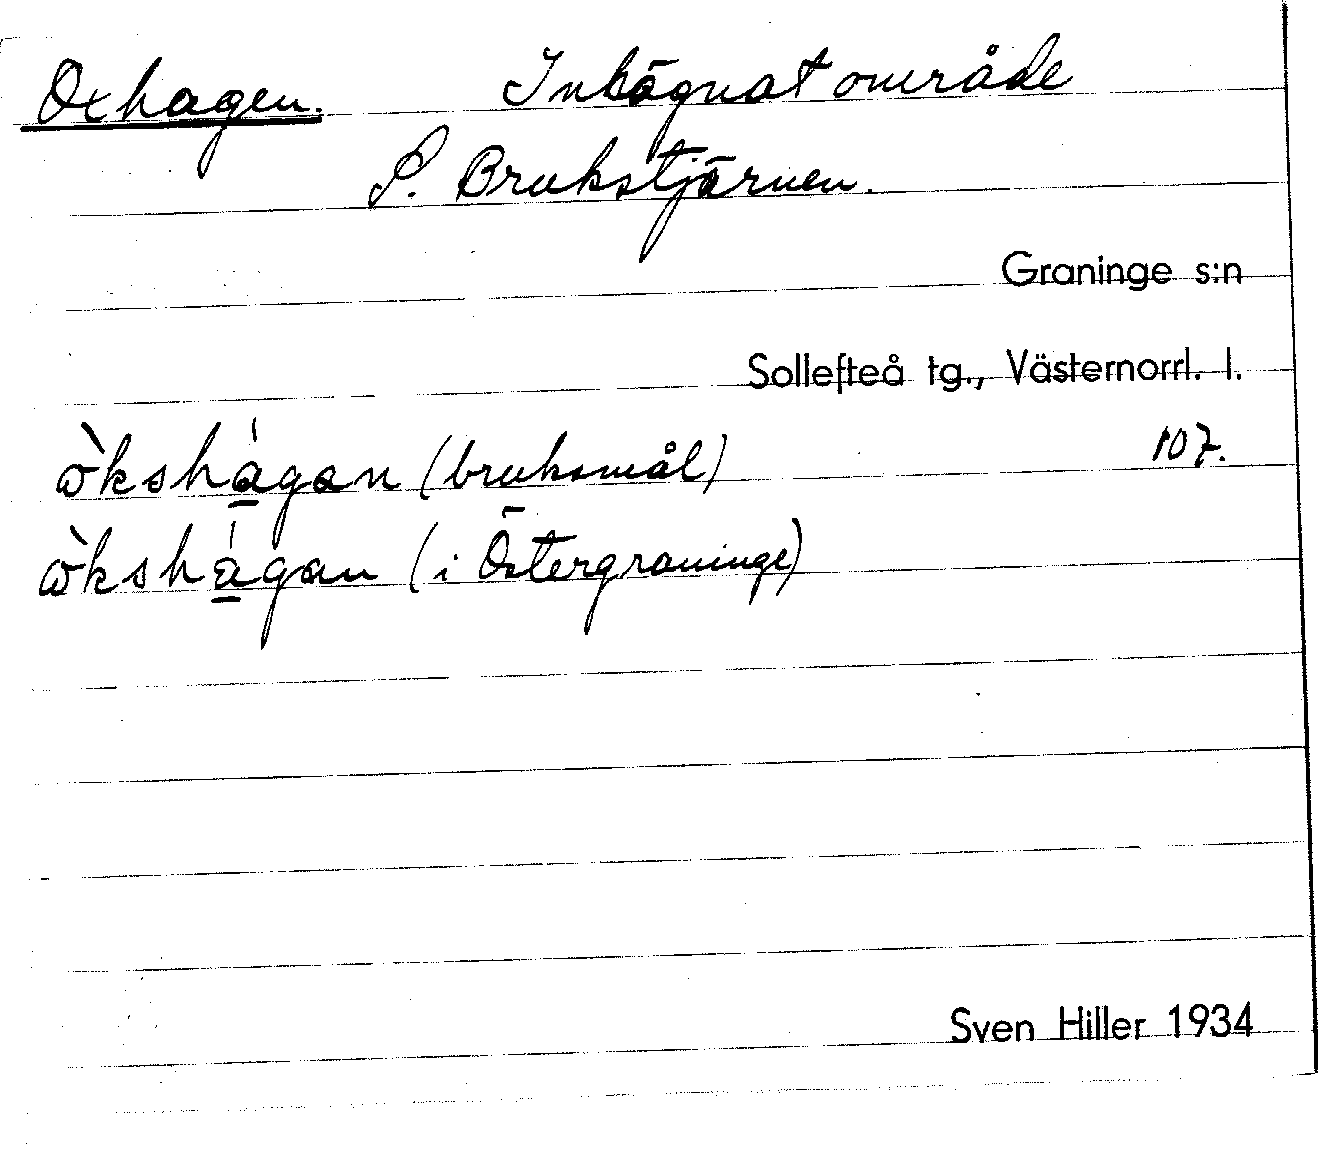 Oxhagen. Inhägnat område
S. Brukstjärnen.
Graninge s:n
Sollefteå tg., Västernorrl. l.
107.
ὼkshágan (bruksmål)
ὼkshágan (i Östergraninge)
Sven Hiller 1934